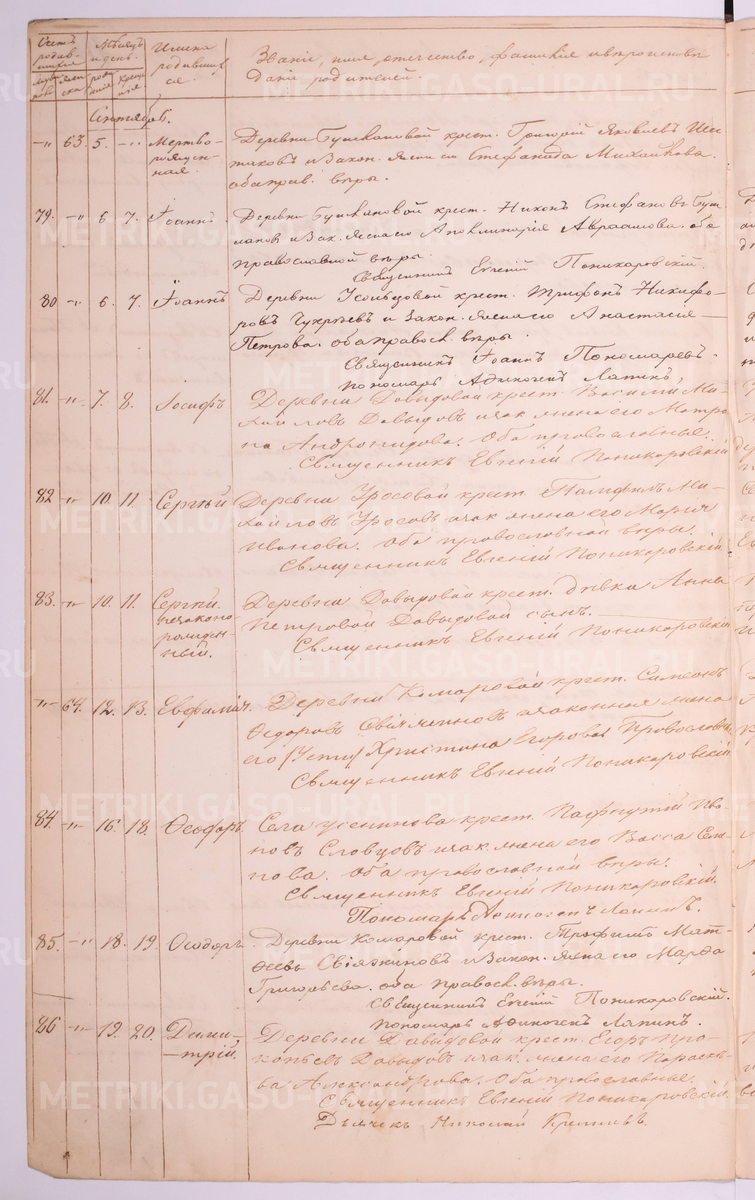 Счетъ родив-шихся
Мѣсяцъ и день.
Имена родившихся.
Званіе, имя, отечество, фамилія и вѣроисповѣданіе родителей.
рожденія
крещенія
Сентябрь.
-"- 63. 5. -"- Мертво-рожденная.
Деревни крест. Григорій Яковлевъ
и закон. жена его Стефанида Михайлова.
оба прав. вѣры.
79. -"- 6 7. Іоаннъ
крест. Никонъ Стефановъ
и зак. жена его Аполлинарія Авраамова. оба
православной вѣры.
Священникъ Евгеній Поникаровскій.
80 -"- 6. 7. Іоаннъ
Деревни Усольцовой крест. Трифонъ Никифо-
ровъ и закон. жена его Анастасія
Петрова. оба правосл. вѣры.
Священникъ Іоаннъ Пономаревъ.
Пономарь Афиногенъ Лапинъ.
81. -"- 7. 8. Іосифъ
Деревни Давыдовой крест. Василій Ми-
хайловъ Давыдовъ и зак. жена его Матро
на Андронидова. Оба православные.
Священникъ Евгеній Поникаровскій
82 -"- 10. 11. Сергѣй
Деревни Уросовой крест. Памфилъ Ми-
хайловъ Уросовъ и зак. жена его Марія
Иванова. Оба православной вѣры.
Священникъ Евгеній Поникаровскій.
83. -"- 10. 11. Сергѣй незаконорожден-ный.
Деревни Давыдовой крест. дѣвка Анна
Петровой Давыдовой сынъ.
Священникъ Евгеній Поникаровскій
-"- 64. 12. 13. Евфимія.
Деревни Комаровой крест. Симеонъ
Ѳедоровъ Свіяженновъ и законная жена
его (Усти) Христина Егорова Православн.
Священникъ Евгеній Поникаровскій
84. -"- 16. 18. Ѳеодоръ.
Села крест. Пафнутій Ива-
новъ Словцовъ и зак. жена его Васса Семе-
нова. Оба православной вѣры.
Священникъ Евгеній Поникаровскій.
Пономарь Афиногенъ Лапинъ.
85. -"- 18. 19. Ѳеодоръ.
Деревни Комаровой крест. Трофимъ Мат-
ѳеевъ Свіяжениновъ и закон. жена его Марѳа
Григорьева. оба правосл. вѣры.
Священникъ Евгеній Поникаровскій.
Пономарь Афиногенъ Лапинъ.
86 -"- 19. 20. Дими-трій.
Деревни Давыдовой крест. Егоръ Про-
копьевъ Давыдовъ и зак. жена его Параске-
ва Александрова. Оба православные.
Священникъ Евгеній Поникаровскій.
Дьячекъ Николай
METRIKI.GASO-URAL.RU